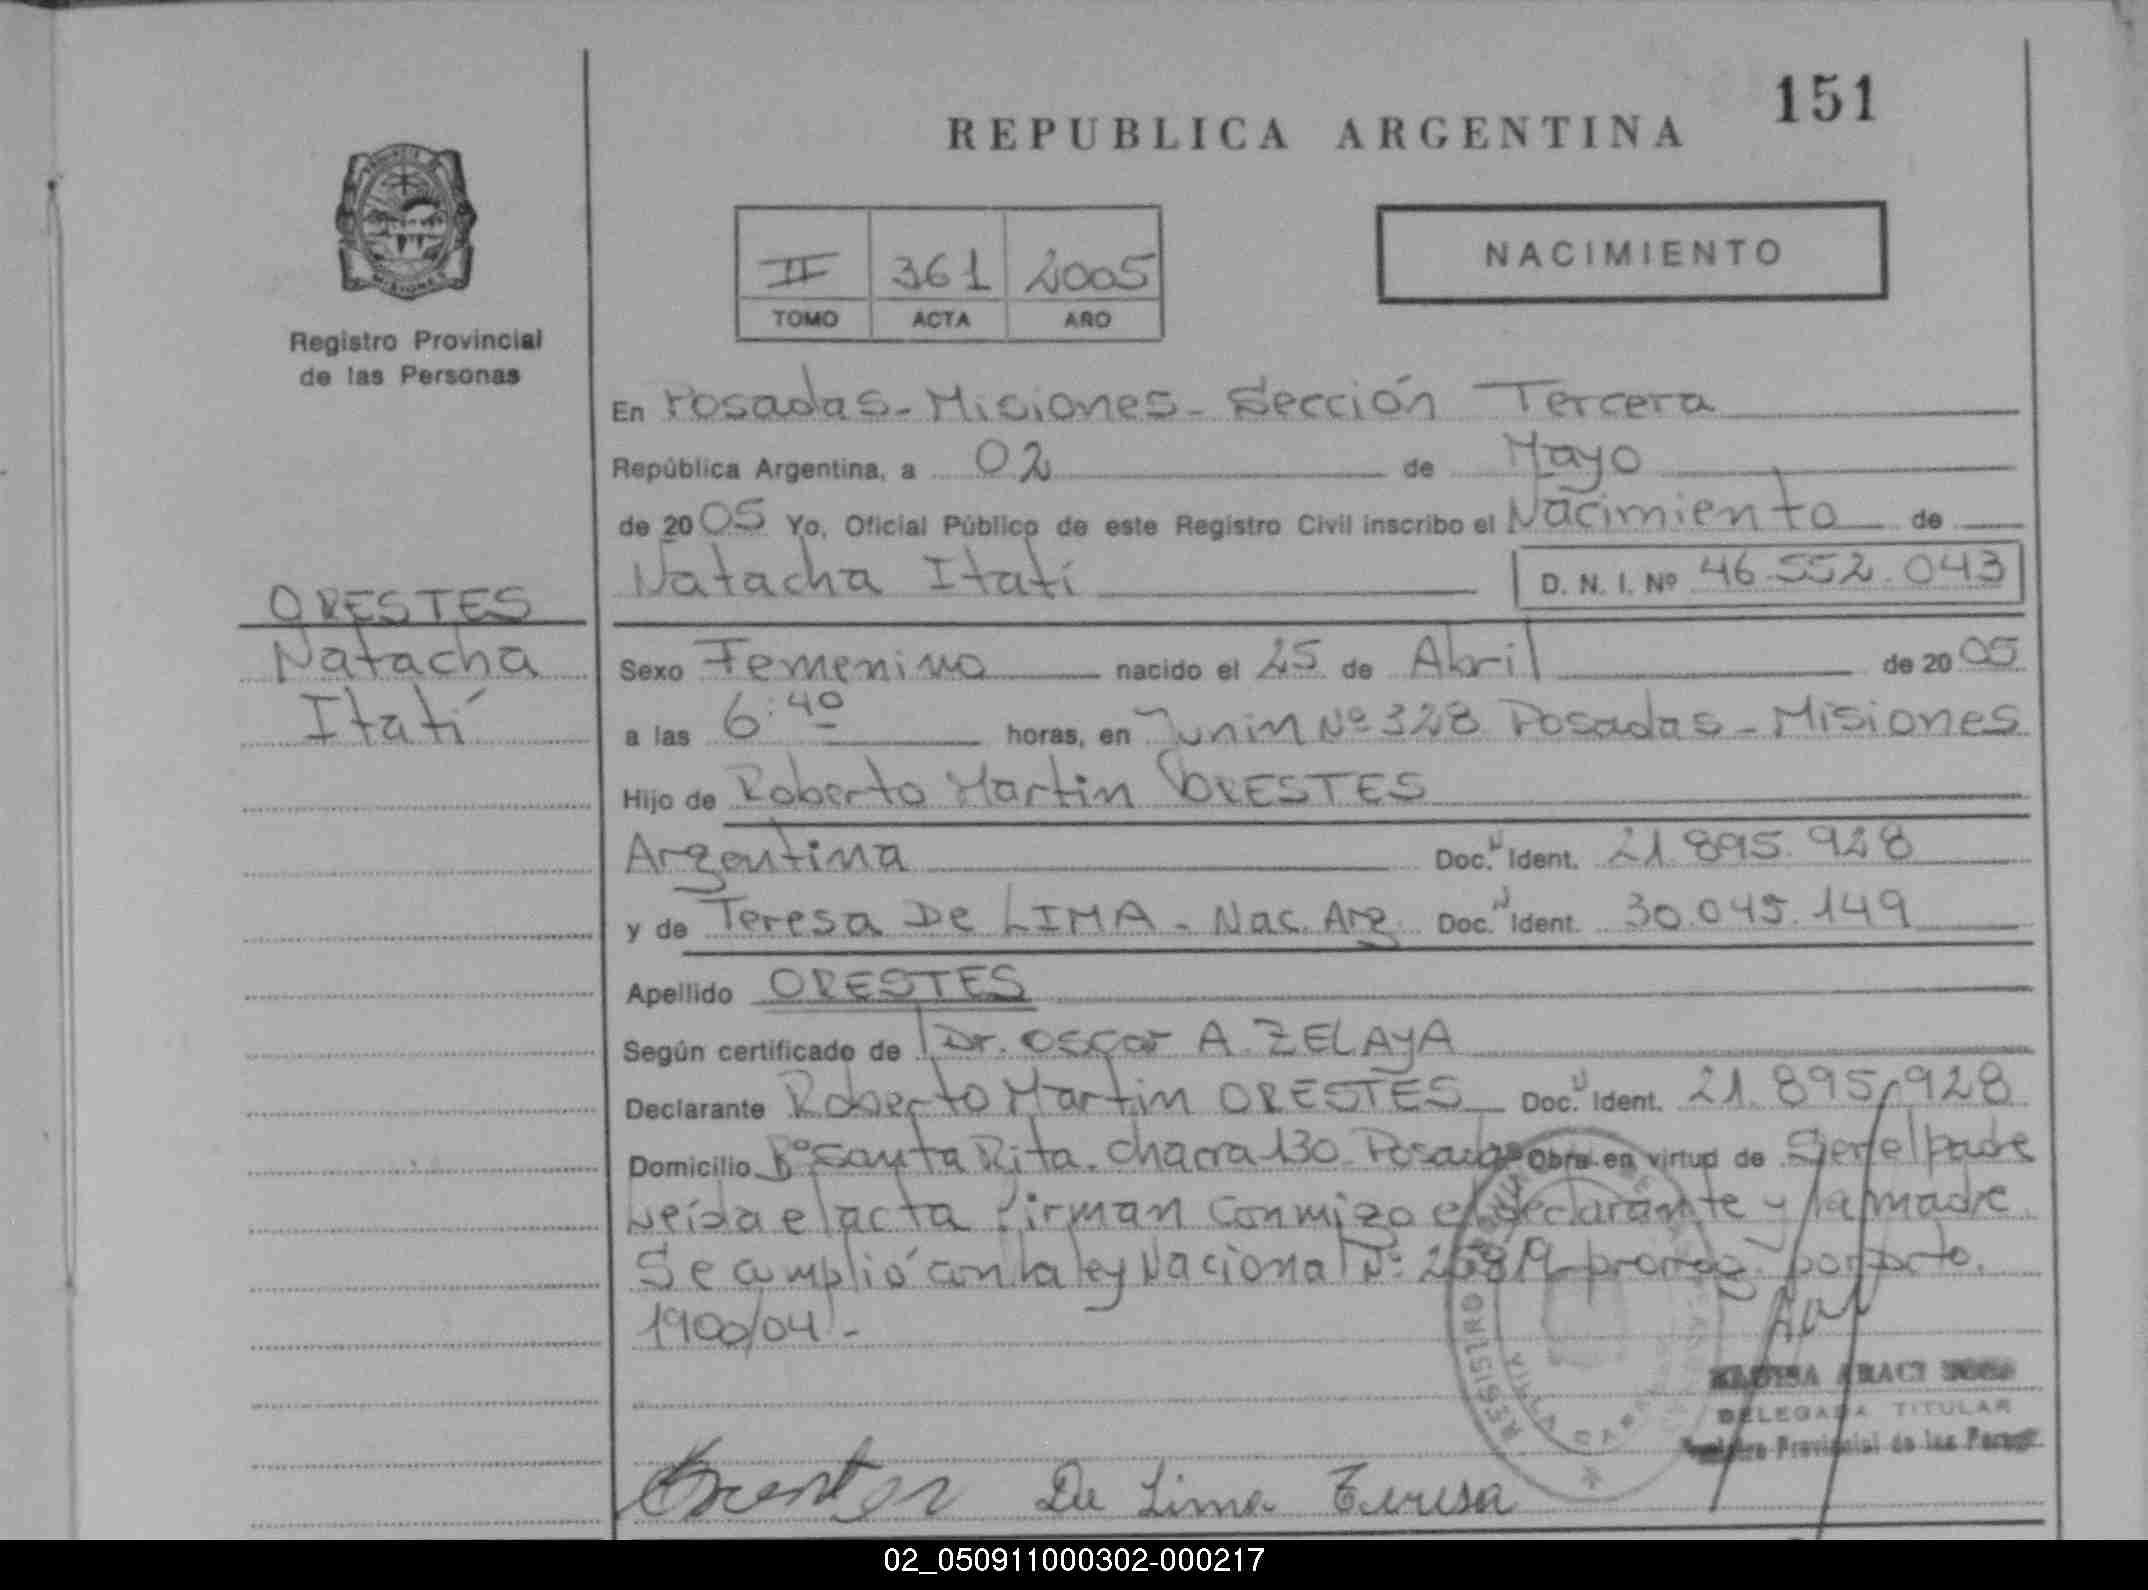 151
REPUBLICA ARGENTINA
NACIMIENTO
II 361 2005
TOMO ACTA AÑO
Registro Provincial
de las Personas
En Posadas - Misiones - Sección Tercera
República Argentina, a 02 de Mayo
de 2005 Yo, Oficial Público de este Registro Civil inscribo el Nacimiento de
Natacha Itatí D. N. I. Nº 46.552.043
ORESTES
Natacha
Itatí
Sexo Femenino nacido el 25 de Abril de 2005
a las 6:40 horas, en Junin Nº 328 Posadas - Misiones
Hijo de Roberto Martin ORESTES
Argentina Doc. Ident. 21.895.928
y de Teresa De LIMA - Nac. Arg. Doc. Ident. 30.045.149
Apellido ORESTES
Según certificado de Dr. Oscar A. ZELAYA
Declarante Roberto Martin ORESTES Doc. Ident. 21.895.928
Domicilio Bº Santa Rita. Chacra 130 Posadas Obra en virtud de Ser el padre
Leída el acta firman conmigo el declarante y la madre
Se amplió con la ley Nacional Nº 25819 prorrog. por
1900/04 -
ARACI
DELEGADA TITULAR
Registro Provincial de las
REGISTRO
VILLA
De Lima Teresa
02_050911000302-000217